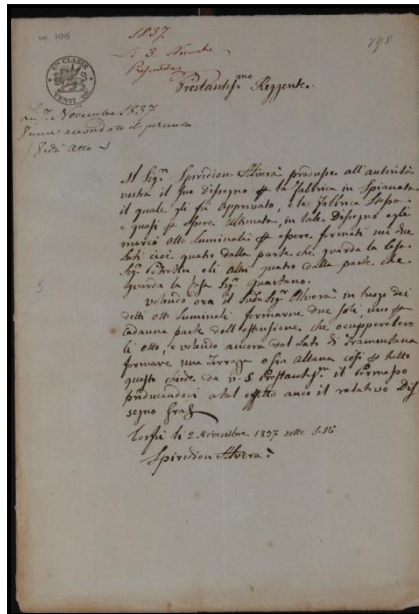 108
1837
Li 3. Novembre
Presentata
198
Prestantis.mo Reggente.
VENTI
Li 7. Novembre 1837
Venne accordato il permesso
Vedi Atto
Il Sig.r Spiridion Alverà produsse all'autorità
vostra il suo Disegno la fabbrica in Spianata
il quale gli fu approvato, e la fabbrica stessa
e quasi essere ultimata, in tale Disegno egli
marcò otto Luminali essere formati nei due
lati cioè quatro dalla parte che guarda la Casa
Sig.r e li altri quatro dalla parte che
guarda la Casa Sig.r Quartano.
Volendo ora il Sud.o Sig.r Alverà in luogo dei
detti otto Luminali formarne due soli, uno
cadauna parte dell'estensione che occupperebbero
li otto, e volendo ancora dal lato di Tramontana
formare una Terrazza o sia Altana così tutto
questo chiede da V.S. Prestantis.ma il permesso
producendovi a tal effetto anco il relativo Dis
segno
Corfù li 2 Novembre 1837 S.N.
Spiridion Alverà